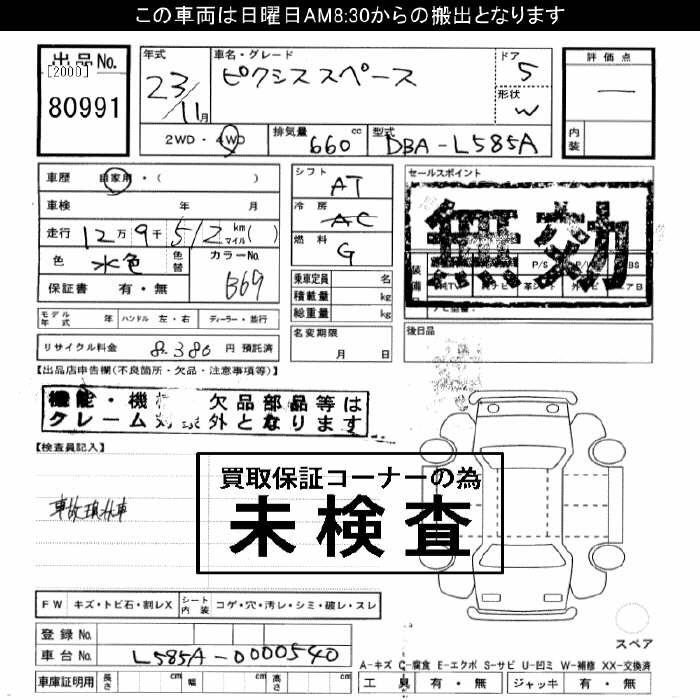 この車両は日曜日AM8:30からの搬出となります
出品No.
[2000]
80991
年式
23/11月
車名・グレード
ピクシススペース
ドア
5
形状
W
評価点
―
内装
2WD・4WD
排気量
660 cc
型式
DBA-L585A
車歴 自家用・( )
車検 年 月
走行 12万9千512 km マイル( )
色 水色 色替
カラーNo. B69
保証書 有・無
シフト AT
冷房 AC
燃料 G
乗車定員 名
積載量 kg
総重量 kg
名変期限
月 日
セールスポイント
無効
装備
P/S
後日品
モデル年式 年 ハンドル 左・右 ディーラー・並行
リサイクル料金 8,380 円 預託済
【出品店申告欄(不良箇所・欠品・注意事項等)】
機能・機 欠品部品等は
クレーム対象外となります
【検査員記入】
買取保証コーナーの為
未検査
事故現状車
FW キズ・トビ石・割レX シート内装 コゲ・穴・汚レ・シミ・破レ・スレ
登録No.
車台No. L585A-0000540
車庫証明用 長さ cm 幅 cm 高さ cm
スペア
A-キズ C-腐食 E-エクボ S-サビ U-凹ミ W-補修 XX-交換済
工具 有・無 ジャッキ 有・無